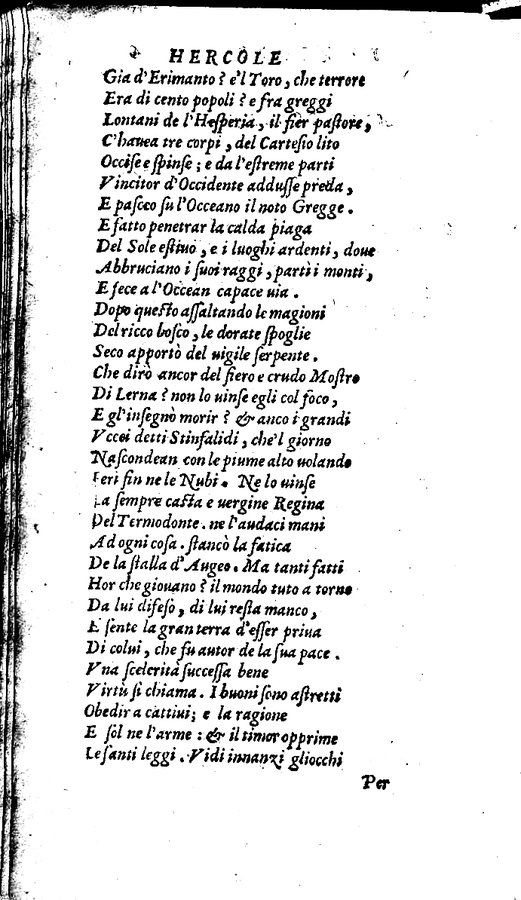 HERCOLE
Gia d'Erimanto? e'l Toro, che terrore
Era di cento popoli? e fra greggi
Lontani de l'Hesperia, il fier pastore,
C'hauea tre corpi, del Cartesio lito
Occise e spinse; e da l'estreme parti
Vincitor d'Occidente addusse preda,
E pasceo su l'Occeano il noto Gregge.
E fatto penetrar la calda piaga
Del Sole estiuo, e i luoghi ardenti, doue
Abbruciano i suoi raggi, partì i monti,
E fece a l'Occean capace uia.
Dopo questo assaltando le magioni
Del ricco bosco, le dorate spoglie
Seco apportò del uigile serpente.
Che dirò ancor del fiero e crudo Mostro
Di Lerna? non lo uinse egli col foco,
E gl'insegnò morir? & anco i grandi
Vccei detti Stinfalidi, che'l giorno
Nascondean con le piume alto uolando
Feri fin ne le Nubi. Ne lo uinse
La sempre casta e uergine Regina
Del Termodonte. ne l'audaci mani
Ad ogni cosa. stancò la fatica
De la stalla d'Augeo. Ma tanti fatti
Hor che giouano? il mondo tuto a torno
Da lui difeso, di lui resta manco,
E sente la gran terra d'esser priua
Di colui, che fu autor de la sua pace.
Vna scelerità successa bene
Virtù si chiama. I buoni sono astretti
Obedir a cattiui; e la ragione
E sol ne l'arme: & il timor opprime
Le santi leggi. Vidi innanzi gliocchi
Per